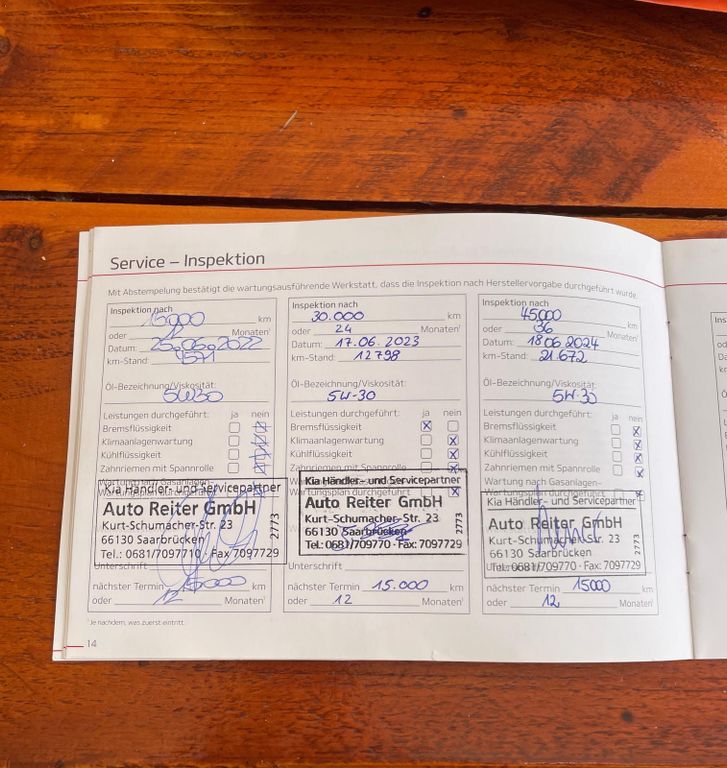 Service – Inspektion
Mit Abstempelung bestätigt die wartungsausführende Werkstatt, dass die Inspektion nach Herstellervorgabe durchgeführt wurde.
Inspektion nach
15.000 km
oder 12 Monaten¹
Datum: 2022
km-Stand:
Öl-Bezeichnung/Viskosität:
5W30
Leistungen durchgeführt: ja nein
Bremsflüssigkeit
Klimaanlagenwartung
Kühlflüssigkeit
Zahnriemen mit Spannrolle
Wartung nach Gasanlagen-
Kia Händler- und Servicepartner
Auto Reiter GmbH
Kurt-Schumacher-Str. 23
66130 Saarbrücken
Tel.: 0681/7097710 · Fax 7097729
2773
Unterschrift
nächster Termin 15000 km
oder 12 Monaten¹
Inspektion nach
30.000 km
oder 24 Monaten¹
Datum: 17.06.2023
km-Stand: 12798
Öl-Bezeichnung/Viskosität:
5W-30
Leistungen durchgeführt: ja nein
Bremsflüssigkeit X
Klimaanlagenwartung X
Kühlflüssigkeit X
Zahnriemen mit Spannrolle X
Wartungsplan durchgeführt X
Kia Händler- und Servicepartner
Auto Reiter GmbH
Kurt-Schumacher-Str. 23
66130 Saarbrücken
Tel.: 0681/709770 · Fax: 7097729
2773
Unterschrift
nächster Termin 15.000 km
oder 12 Monaten¹
Inspektion nach
45000 km
oder 36 Monaten¹
Datum: 18.06.2024
km-Stand: 21.672
Öl-Bezeichnung/Viskosität:
5W-30
Leistungen durchgeführt: ja nein
Bremsflüssigkeit X
Klimaanlagenwartung X
Kühlflüssigkeit X
Zahnriemen mit Spannrolle X
Wartung nach Gasanlagen-
Wartungsplan durchgeführt X
Kia Händler- und Servicepartner
Auto Reiter GmbH
Kurt-Schumacher-Str. 23
66130 Saarbrücken
Tel.: 0681/709770 · Fax: 7097729
2773
nächster Termin 15000 km
oder 12 Monaten¹
¹ Je nachdem, was zuerst eintritt.
14